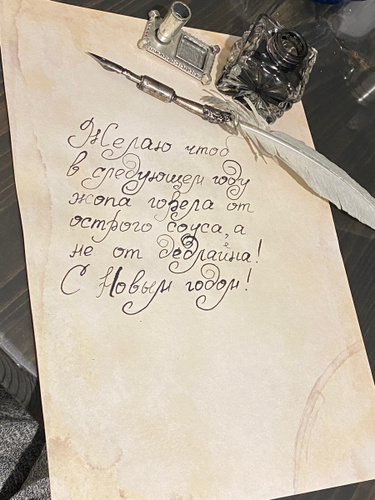 Желаю чтоб
в следующем году
жопа горела от
острого соуса, а
не от дедлайна!
С Новым годом!